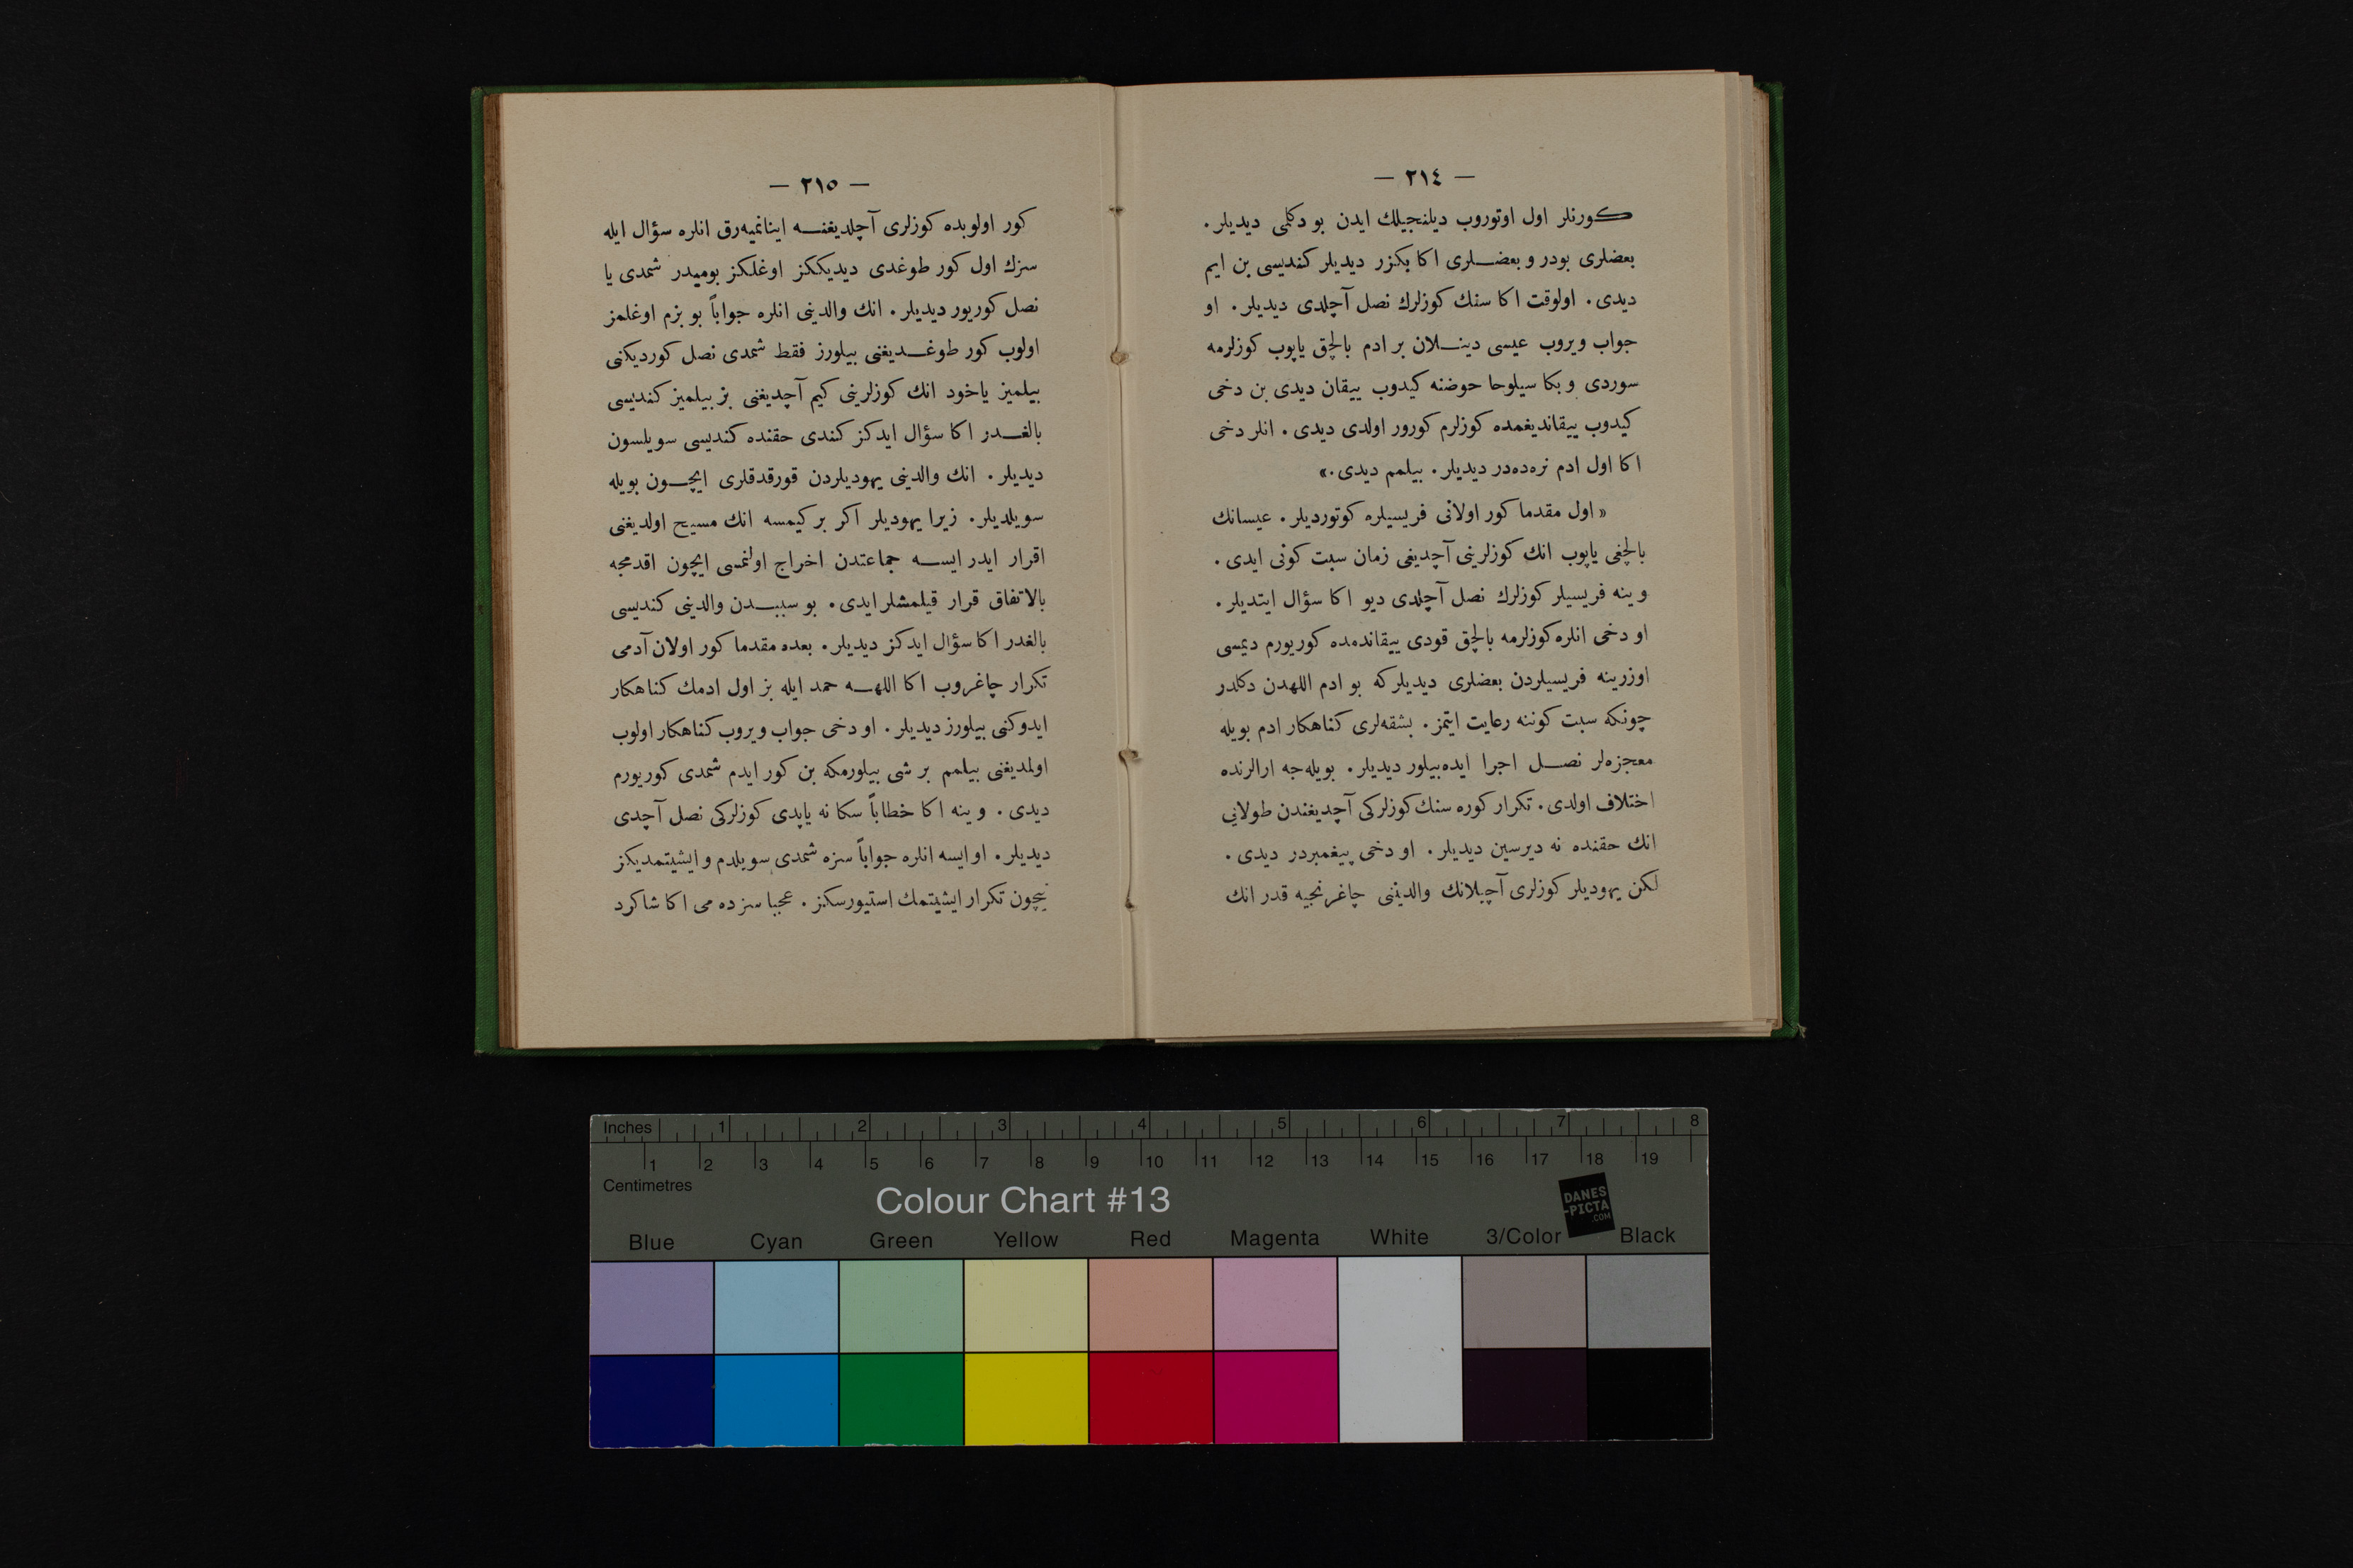 — ٢١٤ —
كورنلر اول اوتوروب ديلنجيلك ايدن بو دكلمى ديديلر .
بعضلرى بودر و بعضلرى اكا بكزر ديديلر كنديسى بن ايم
ديدى . اولوقت اكا سنك كوزلرك نصل آچلدى ديديلر . او
جواب ويروب عيسى دينلان بر ادم بالچق ياپوب كوزلرمه
سوردى و بكا سيلوحا حوضنه كيدوب ييقان ديدى بن دخى
كيدوب ييقانديغمده كوزلرم كورور اولدى ديدى . انلر دخى
اكا اول ادم نره‌ده‌در ديديلر . بيلمم ديدى .»
« اول مقدما كور اولانى فريسيلره كوتورديلر . عيسانك
بالچغى ياپوب انك كوزلرينى آچديغى زمان سبت كونى ايدى .
و ينه فريسيلر كوزلرك نصل آچلدى ديو اكا سؤال ايتديلر .
او دخى انلره كوزلرمه بالچق قودى ييقاندمده كوريورم ديمسى
اوزرينه فريسيلردن بعضلرى ديديلركه بو ادم اللهدن دكلدر
چونكه سبت كوننه رعايت ايتمز . بشقه‌لرى كناهكار ادم بويله
معجزه‌لر نصل اجرا ايده‌بيلور ديديلر . بويله‌جه ارالرنده
اختلاف اولدى . تكرار كوره سنك كوزلركى آچديغندن طولايى
انك حقنده نه ديرسين ديديلر . او دخى پيغمبردر ديدى .
لكن يهوديلر كوزلرى آچيلانك والدينى چاغرنجيه قدر انك
— ٢١٥ —
كور اولوبده كوزلرى آچلديغنه اينانميه‌رق انلره سؤال ايله
سزك اول كور طوغدى ديديككز اوغلكز بوميدر شمدى يا
نصل كوريور ديديلر . انك والدينى انلره جواباً بو بزم اوغلمز
اولوب كور طوغديغنى بيلورز فقط شمدى نصل كورديكنى
بيلميز ياخود انك كوزلرينى كيم آچديغنى بز بيلميز كنديسى
بالغدر اكا سؤال ايدكز كندى حقنده كنديسى سويلسون
ديديلر . انك والدينى يهوديلردن قورقدقلرى ايچون بويله
سويلديلر . زيرا يهوديلر اكر بر كيمسه انك مسيح اولديغنى
اقرار ايدر ايسه جماعتدن اخراج اولنمسى ايچون اقدمجه
بالاتفاق قرار قيلمشلر ايدى . بو سببدن والدينى كنديسى
بالغدر اكا سؤال ايدكز ديديلر . بعده مقدما كور اولان آدمى
تكرار چاغروب اكا اللهه حمد ايله بز اول ادمك كناهكار
ايدوكنى بيلورز ديديلر . او دخى جواب ويروب كناهكار اولوب
اولمديغنى بيلمم بر شى بيلورمكه بن كور ايدم شمدى كوريورم
ديدى . و ينه اكا خطاباً سكا نه ياپدى كوزلركى نصل آچدى
ديديلر . او ايسه انلره جواباً سزه شمدى سويلدم و ايشيتمديكز
نيچون تكرار ايشيتمك استيورسكز . عجبا سزده مى اكا شاكرد
Inches 1 2 3 4 5 6 7 8
1 2 3 4 5 6 7 8 9 10 11 12 13 14 15 16 17 18 19
Centimetres
Colour Chart #13
DANES
-PICTA
.COM
Blue Cyan Green Yellow Red Magenta White 3/Color Black